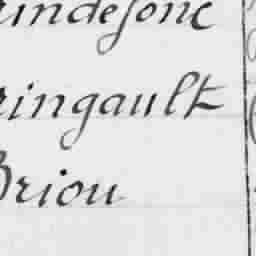 undesonc
ringault
Briou